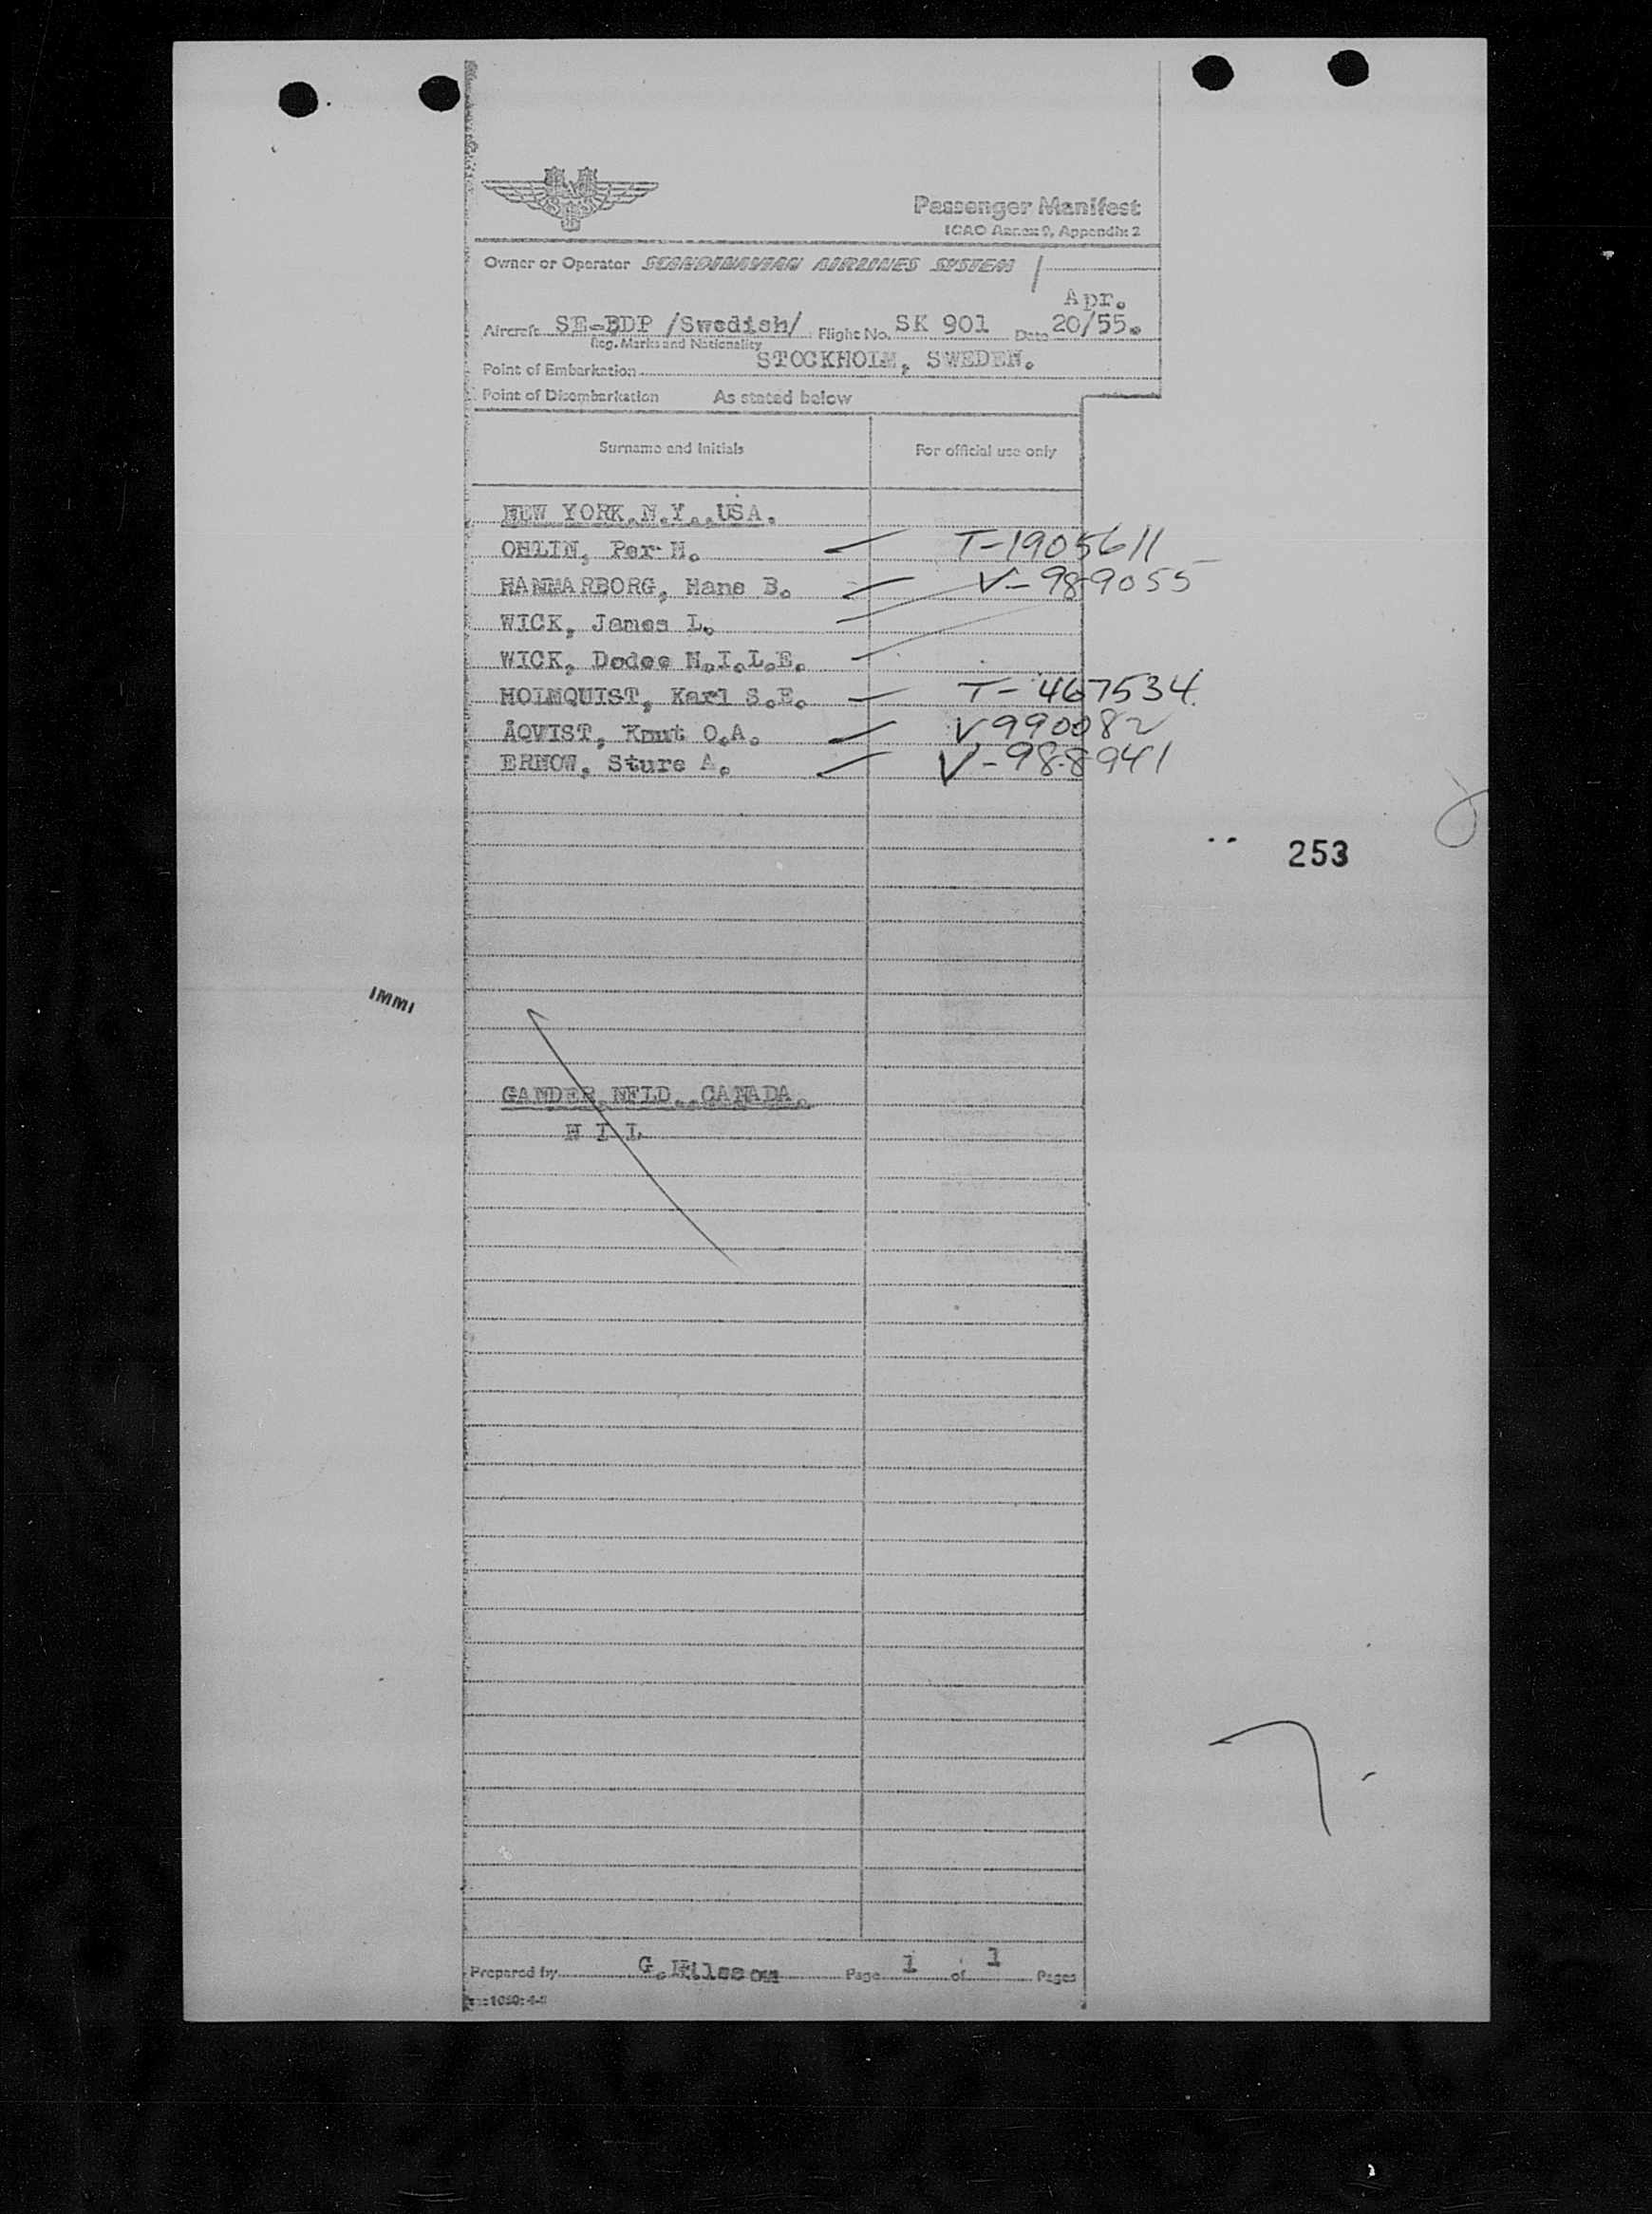 SAS
Passenger Manifest
ICAO Annex 9, Appendix 2
Owner or Operator SCANDINAVIAN AIRLINES SYSTEM
Apr.
Aircraft SE-BDP /Swedish/ Flight No. SK 901 Date 20/55.
Reg. Marks and Nationality
Point of Embarkation STOCKHOLM, SWEDEN.
Point of Disembarkation As stated below
Surname and Initials For official use only
NEW YORK, N.Y., USA.
OHLIN, Per H. T-1905611
HAMMARBORG, Hans B. V-989055
WICK, James L.
WICK, Dodee N.I.L.E.
HOLMQUIST, Karl S.E. T-467534
ÅQVIST, Knut O.A. V990082
ERNOW, Sture A. V-988941
253
IMMI
GANDER, NFLD., CANADA.
N I L
Prepared by G. Page 1 of 1 Pages